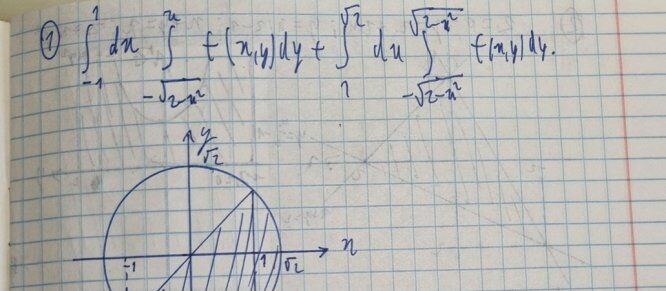 ① ∫₋₁¹ dx ∫_{-√(2-x²)}^{x} f(x,y)dy + ∫₁^{√2} dx ∫_{-√(2-x²)}^{√(2-x²)} f(x,y)dy.
y
√2
x
-1 1 √2